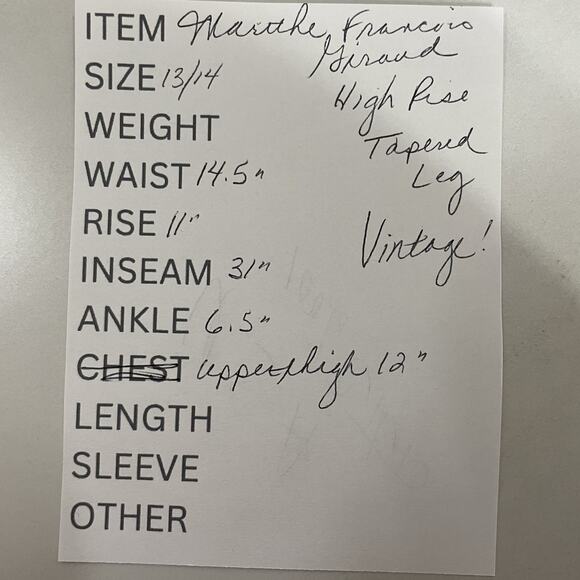 ITEM Marithe Francois
Giraud
SIZE 13/14
High Rise
WEIGHT
Tapered
WAIST 14.5"
Leg
RISE 11"
Vintage!
INSEAM 31"
ANKLE 6.5"
CHEST upper thigh 12"
LENGTH
SLEEVE
OTHER